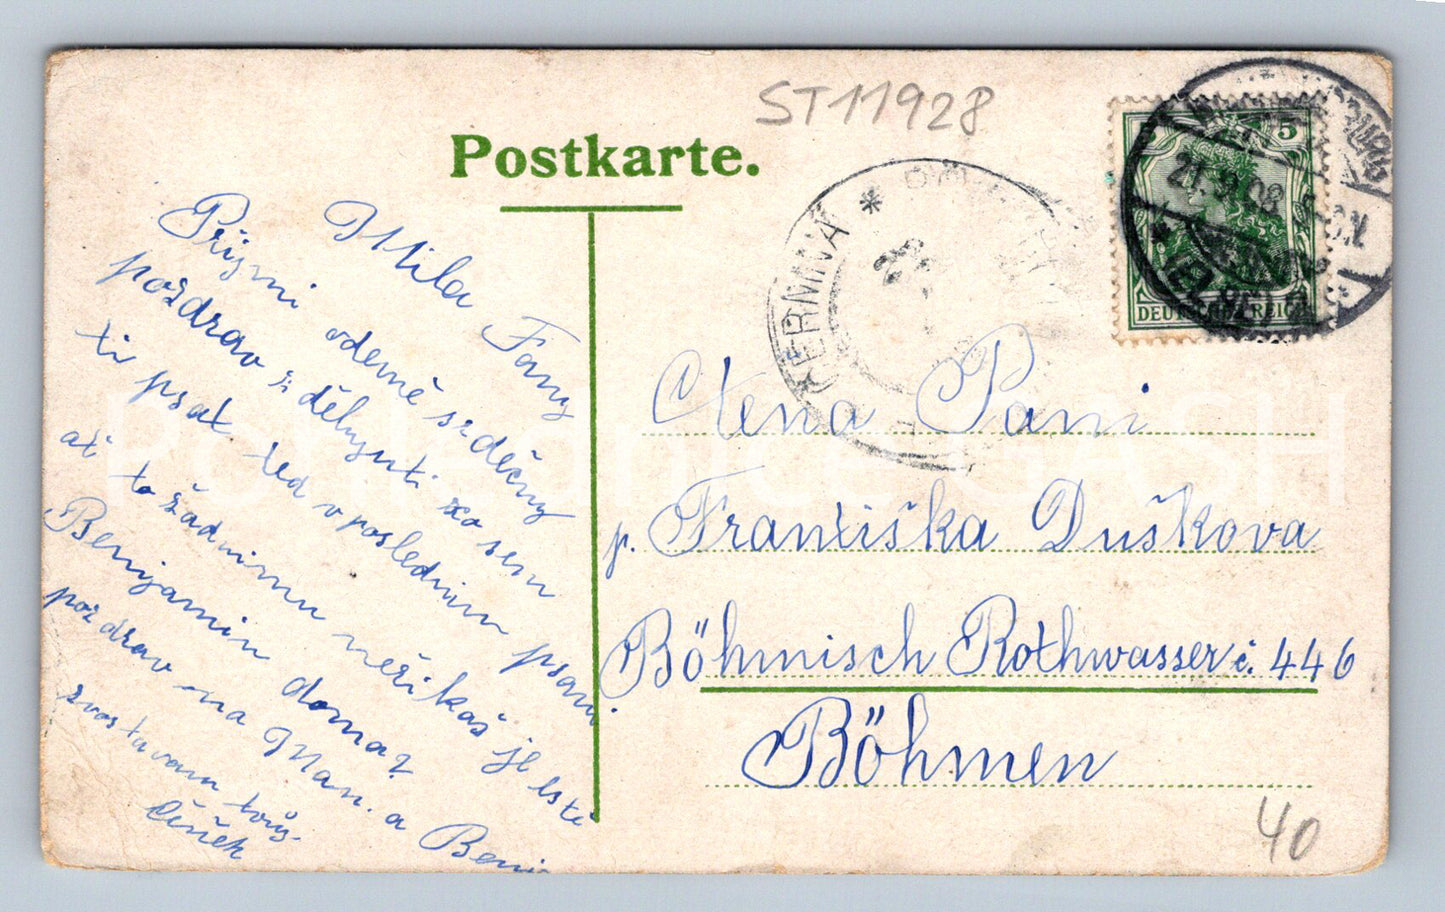 ST11928
Postkarte.
5
21. 9. 08
DEUTSCHES REICH
ČERMNÁ *
Milá Fany
Příjmi odemě srdečný
pozdrav
ti psát. teď v posledním psaní.
ať to žádnimu neřikaš je lstě
Benjamin doma?
pozdrav na Man. a Benj
zvostavam tvůj
Čeněk
Ctena Pani
p. Františka Duškova
Böhmisch Rothwasser č. 446
Böhmen
40